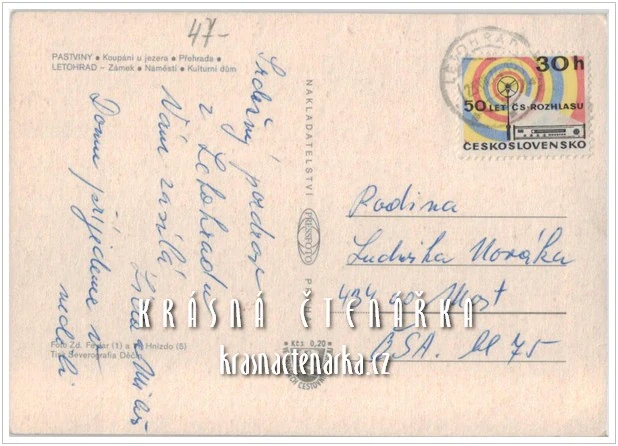 47-
PASTVINY • Koupání u jezera • Přehrada •
LETOHRAD – Zámek • Náměstí • Kulturní dům
Srdečný pozdrav
z Letohradu
Vám zasílá
Domu přijedeme v
neděli
NAKLADATELSTVÍ
PRESSFOTO
LETOHRAD
30 h
50 LET ČS. ROZHLASU
ČESKOSLOVENSKO
Rodina
Ludvíka Nováka
434 00 Most
BŠA.
Foto Zd. Hnízdo (5)
Tisk Severografia Děčín
Kčs 0,20
KRÁSNÁ ČTENÁŘKA
krasnactenarka.cz